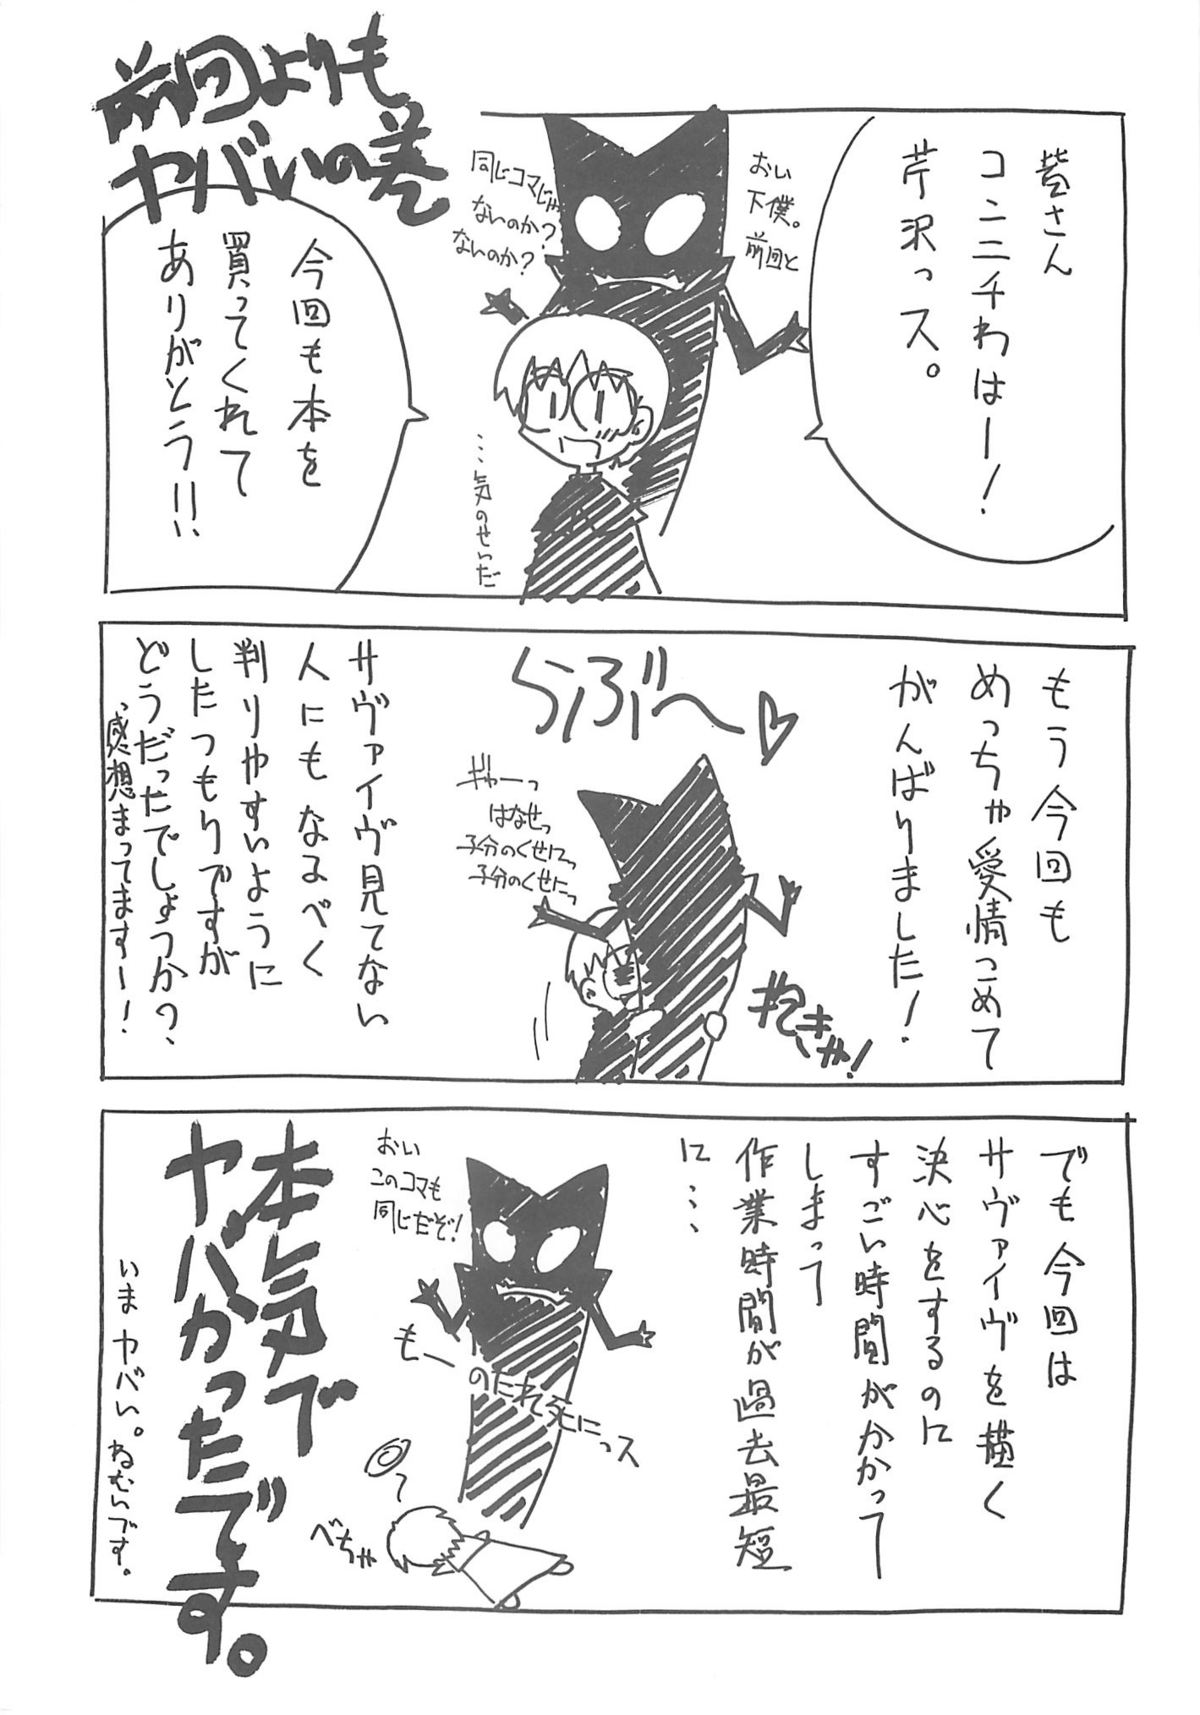 前回よりも
ヤバいの巻
皆さん
コンニチわはー!
芹沢っス。
おい
下僕。
前回と
同じコマじゃ
ないのか?
ないのか?
…気のせいだ
今回も本を
買ってくれて
ありがとう!!
もう今回も
めっちゃ愛情こめて
がんばりました!
らぶ〜♡
ぎゃーっ
はなせっ
子分のくせにっ
子分のくせにっ
だきゃ!
サヴァイヴ見てない
人にもなるべく
判りやすいように
したつもりですが
どうだったでしょうか?
感想まってますー!
でも今回は
サヴァイヴを描く
決心をするのに
すごい時間がかかって
しまって
作業時間が過去最短
に…
おい
このコマも
同じだぞ!
もーのたれ死にっス
べちゃ
本気で
ヤバかったです。
いまヤバい。ねむいです。